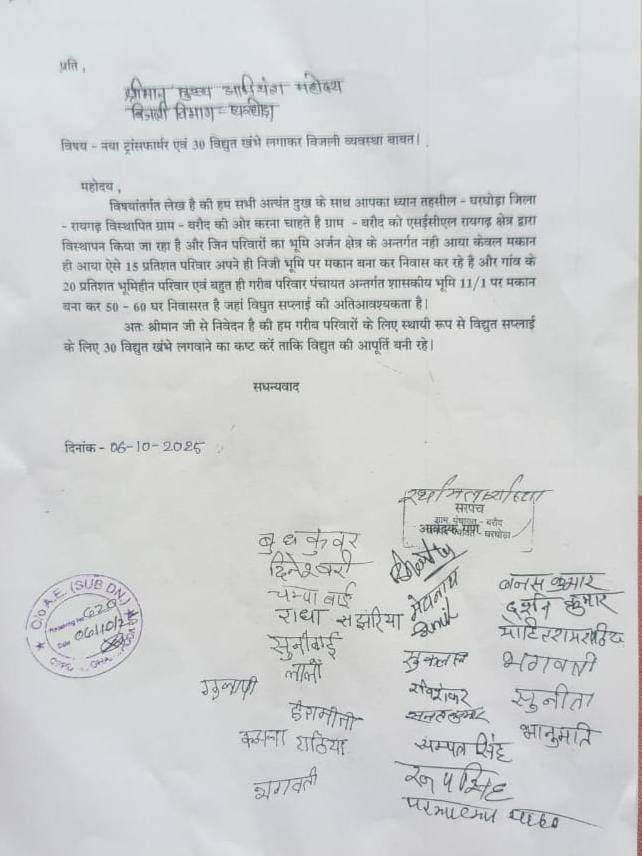 प्रति ,
श्रीमान मुख्य महोदय
बिजली विभाग - घरघोड़ा
विषय - नया ट्रांसफार्मर एवं 30 विद्युत खंभे लगाकर विजली व्यवस्था बावत।
महोदय ,
विषयांतर्गत लेख है की हम सभी अत्यंत दुख के साथ आपका ध्यान तहसील - घरघोड़ा जिला
- रायगढ़ विस्थापित ग्राम - बरौद की ओर करना चाहते है ग्राम - बरौद को एसईसीएल रायगढ़ क्षेत्र द्वारा
विस्थापन किया जा रहा है और जिन परिवारों का भूमि अर्जन क्षेत्र के अन्तर्गत नही आया केवल मकान
ही आया ऐसे 15 प्रतिशत परिवार अपने ही निजी भूमि पर मकान बना कर निवास कर रहे है और गांव के
20 प्रतिशत भूमिहीन परिवार एवं बहुत ही गरीब परिवार पंचायत अन्तर्गत शासकीय भूमि 11/1 पर मकान
बना कर 50 - 60 घर निवासरत है जहां विघुत सप्लाई की अतिआवश्यकता है।
अतः श्रीमान जी से निवेदन है की हम गरीब परिवारों के लिए स्थायी रूप से विद्युत सप्लाई
के लिए 30 विद्युत खंभे लगवाने का कष्ट करें ताकि विद्युत की आपूर्ति बनी रहे।
सधन्यवाद
दिनांक - 06-10-2025
सरपंच
ग्राम पंचायत - बरौद
आवेदक गण
घरघोड़ा
बुधकुंवर
दिनेश्वरी
चम्पा बाई
राधा
सुनीबाई
लाली
कमला राठिया
भगवती
मेघनाथ
Sunil
रविशंकर
सम्पत सिंह
रूपसिंह
बनस कुमार
दर्शन कुमार
भगवती
सुनीता
भानुमति
O/o A.E. (SUB DN.)
620
Date 06/10/2